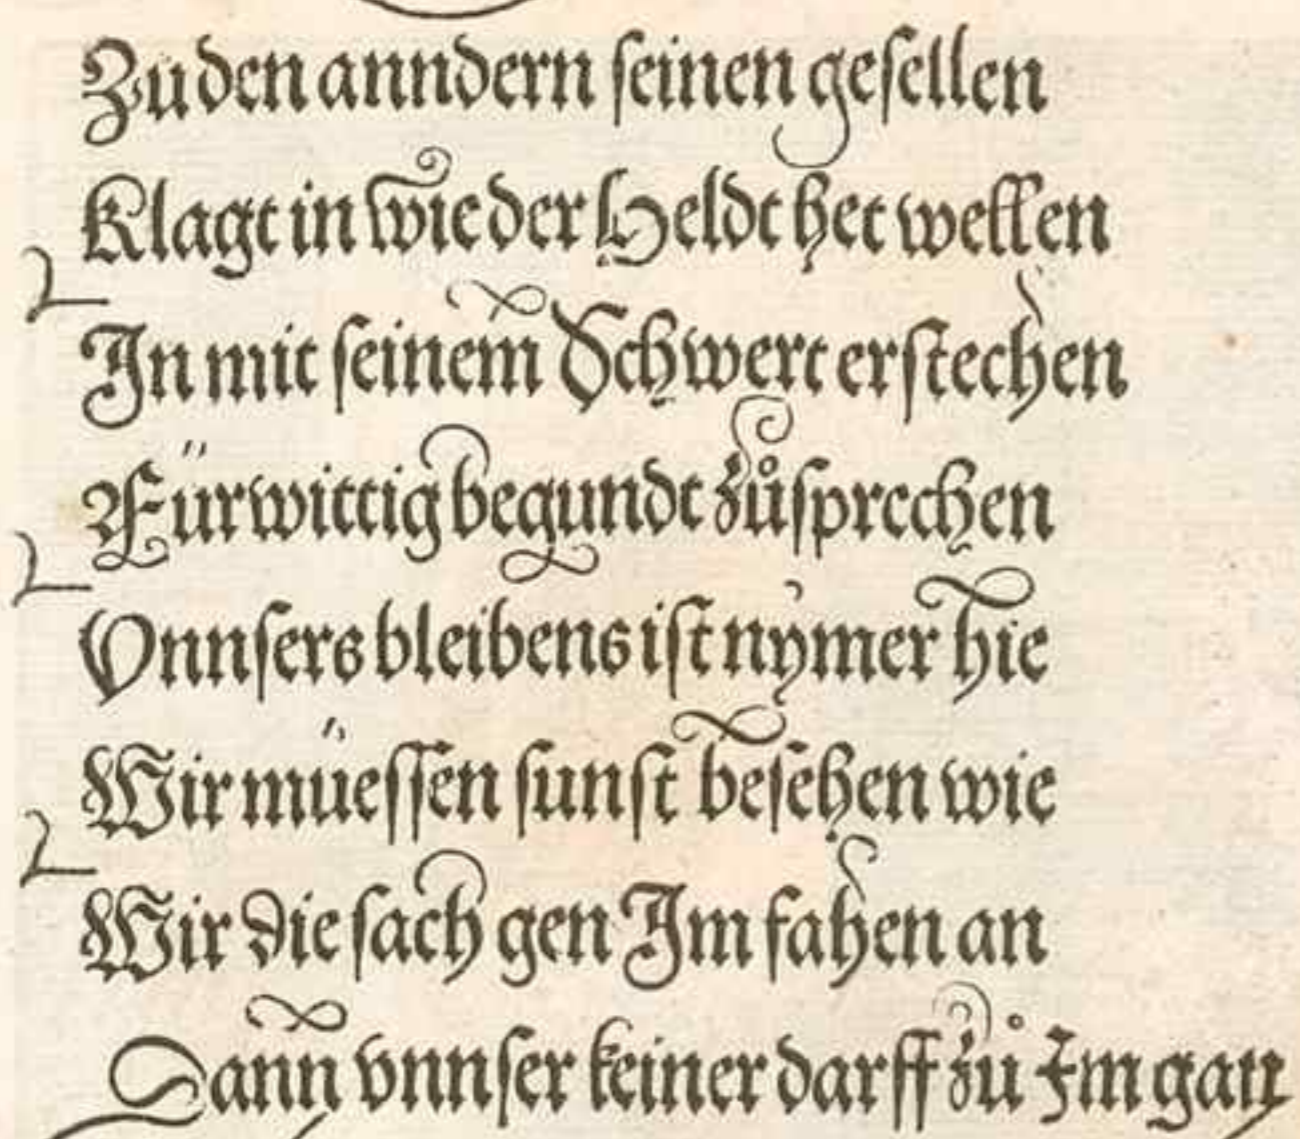 Zu den anndern seinen gesellen
Klagt in wie der Heldt het wellen
In mit seinem Schwert erstechen
Fürwittig begundt zůsprechen
Vnnsers bleibens ist nymer hie
Wir müessen sunst besehen wie
Wir die sach gen Im fahen an
Dann vnnser keiner darff zů Im gan